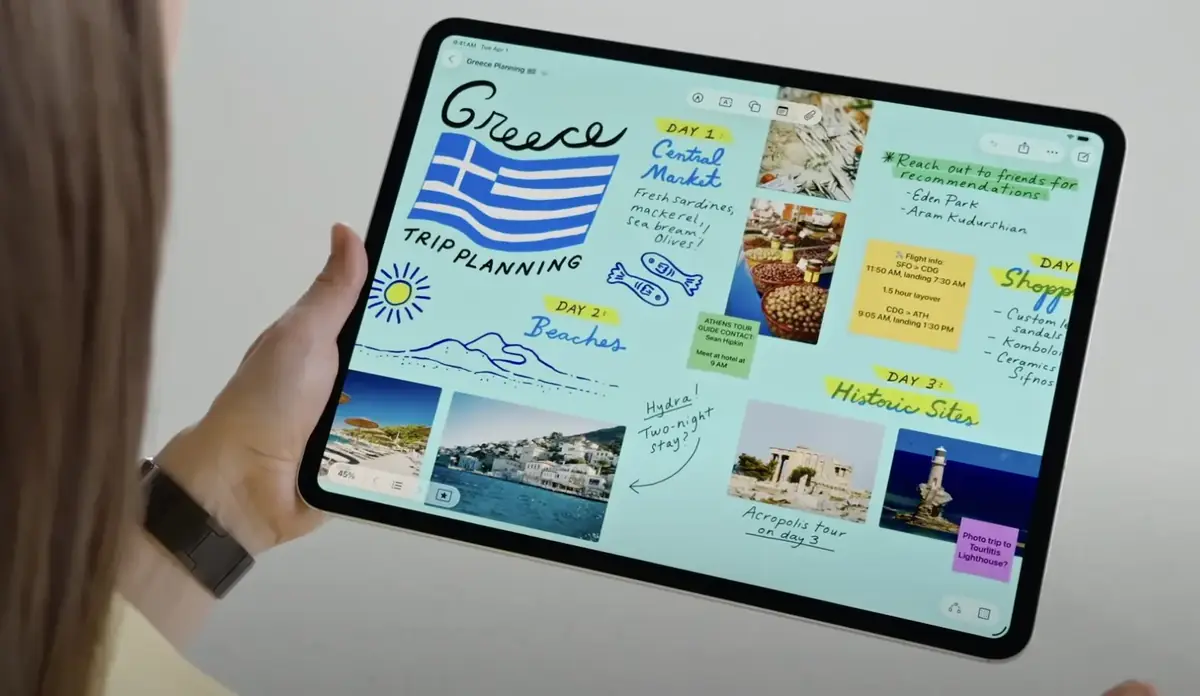 9:41 AM Tue Apr 1
Greece Planning
Greece
TRIP PLANNING
DAY 1:
Central
Market
Fresh sardines,
mackerel,
sea bream!
Olives!
DAY 2:
Beaches
ATHENS TOUR
GUIDE CONTACT:
Sean Hipkin
Meet at hotel at
9 AM
Hydra!
Two-night
stay?
45%
*Reach out to friends for
recommendations
-Eden Park
-Aram Kudurshian
Flight info:
SFO > CDG
11:50 AM, landing 7:30 AM
1.5 hour layover
CDG > ATH
9:05 AM, landing 1:30 PM
DAY
Shopp
- Custom le
sandals
- Komboloi
- Ceramics
Sifnos
DAY 3:
Historic Sites
Acropolis tour
on day 3
Photo trip to
Tourlitis
Lighthouse?